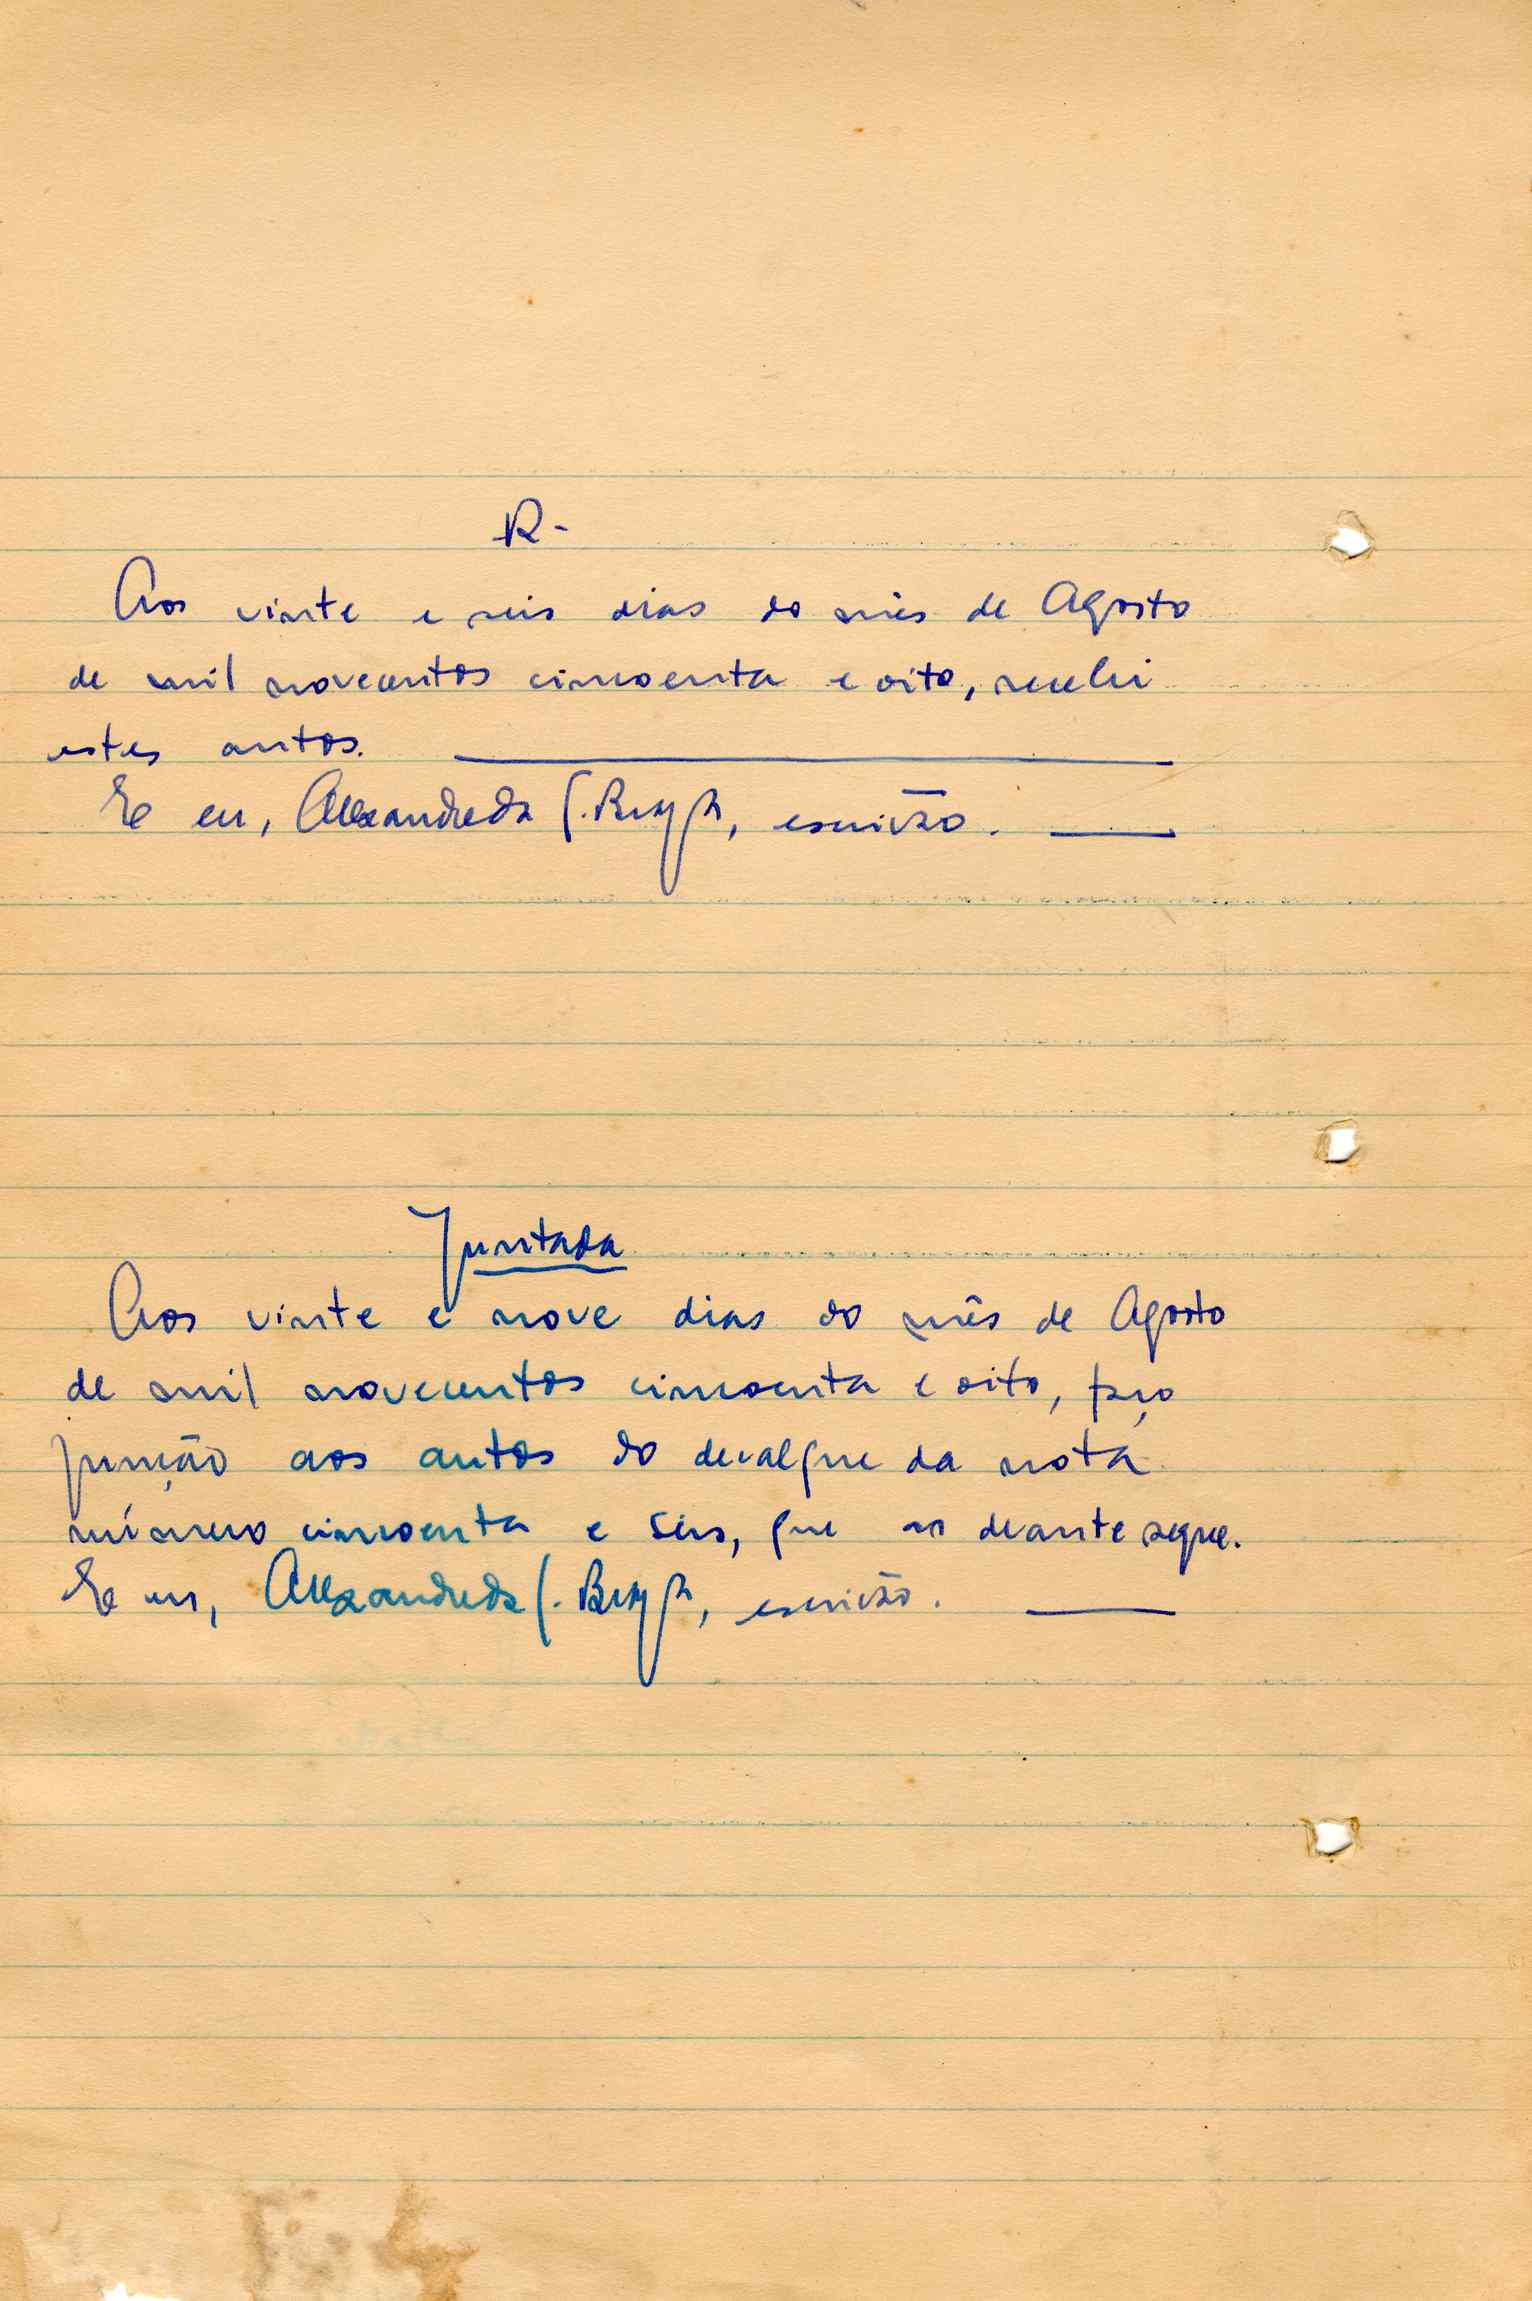 R -
Aos vinte e seis dias do mês de Agosto
de mil novecentos cincoenta e oito, recebi
estes autos.
E eu, Alexandre da S. Braga, escrivão.
Juntada
Aos vinte e nove dias do mês de Agosto
de mil novecentos cincoenta e oito, faço
junção aos autos do decalque da nota
número cincoenta e seis, que ao deante segue.
E eu, Alexandre da S. Braga, escrivão.